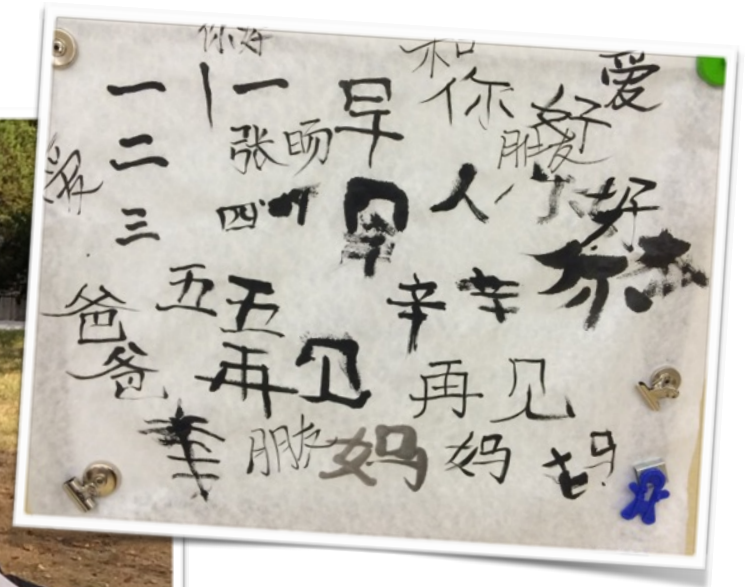 你好 和
一 一 早 你好 爱
二 张旸 朋友
爱 三 四 早 人 你好
五 五 辛 辛 你
爸爸 再见 再见
朋友 妈 妈 妈